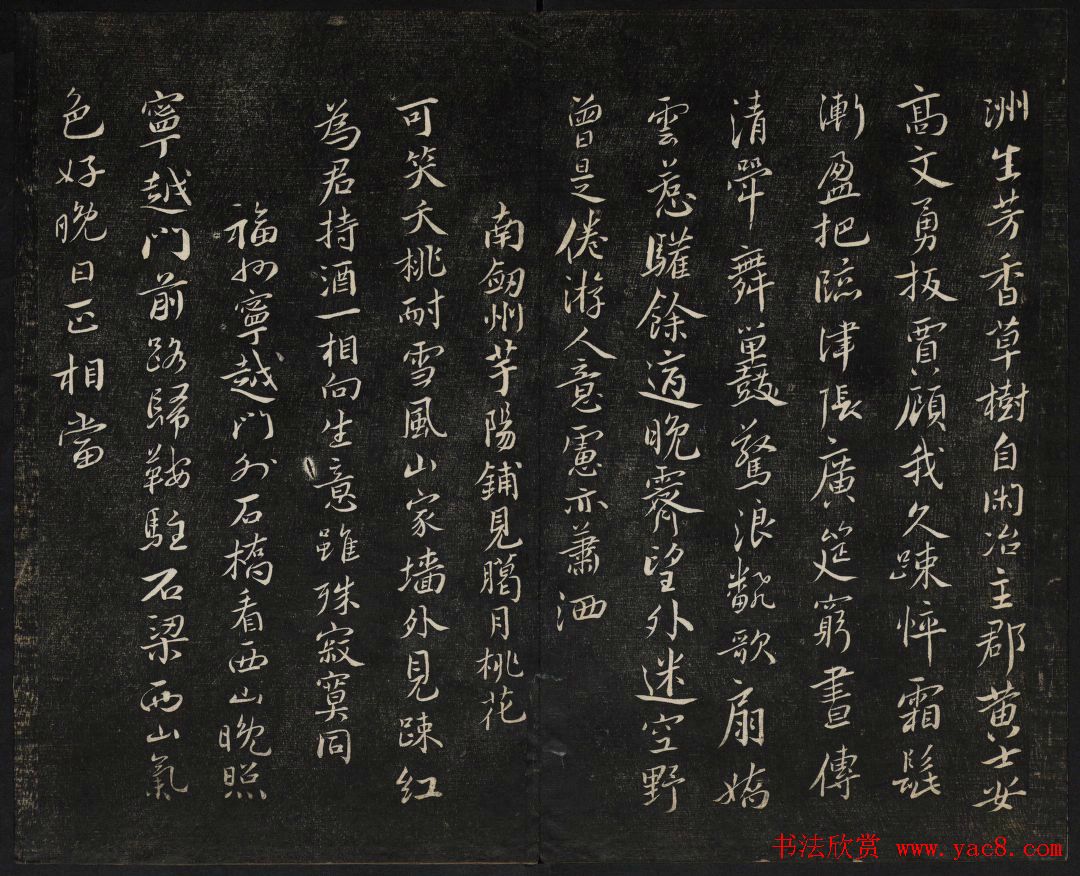 洲生芳香草樹自閑冶主郡黃士安
高文勇扳賈顧我久踈悴霜髭
漸盈把臨津張廣筵窮晝傳
清斝舞鼉驚浪翻歌扇嬌
雲惹驩餘適晚霽望外迷空野
曾是倦游人意慮亦蕭洒
南劔州芋陽鋪見臈月桃花
可笑夭桃耐雪風山家墻外見踈紅
為君持酒一相向生意雖殊寂寞同
福州寧越門外石橋看西山晚照
寧越門前路歸鞍駐石梁西山氣
色好晚日正相當
书法欣赏 www.yac8.com